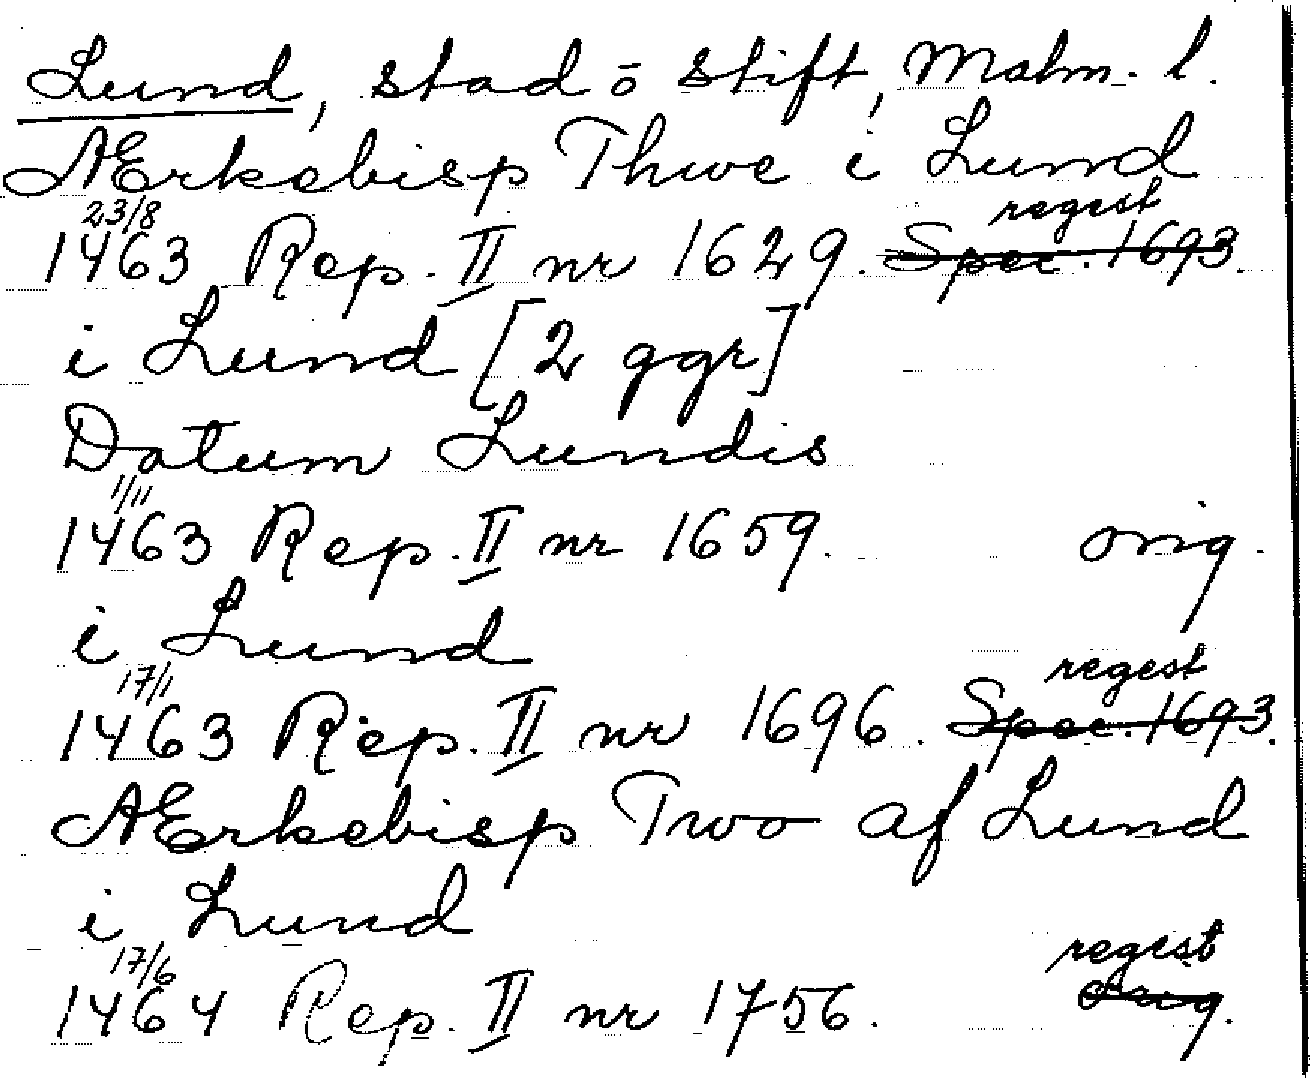 Lund, stad o stift, Malm. l.
AErkebisp Thwe i Lund
23/8 regest
1463 Rep. II nr 1629. Spec. 1693.
i Lund [2 ggr]
Datum Lundis
1/11
1463 Rep. II nr 1659. orig.
i Lund
17/1 regest
1463 Rep. II nr 1696. Spec. 1693.
AErkebisp Two af Lund
i Lund
17/6 regest
1464 Rep. II nr 1756. orig.